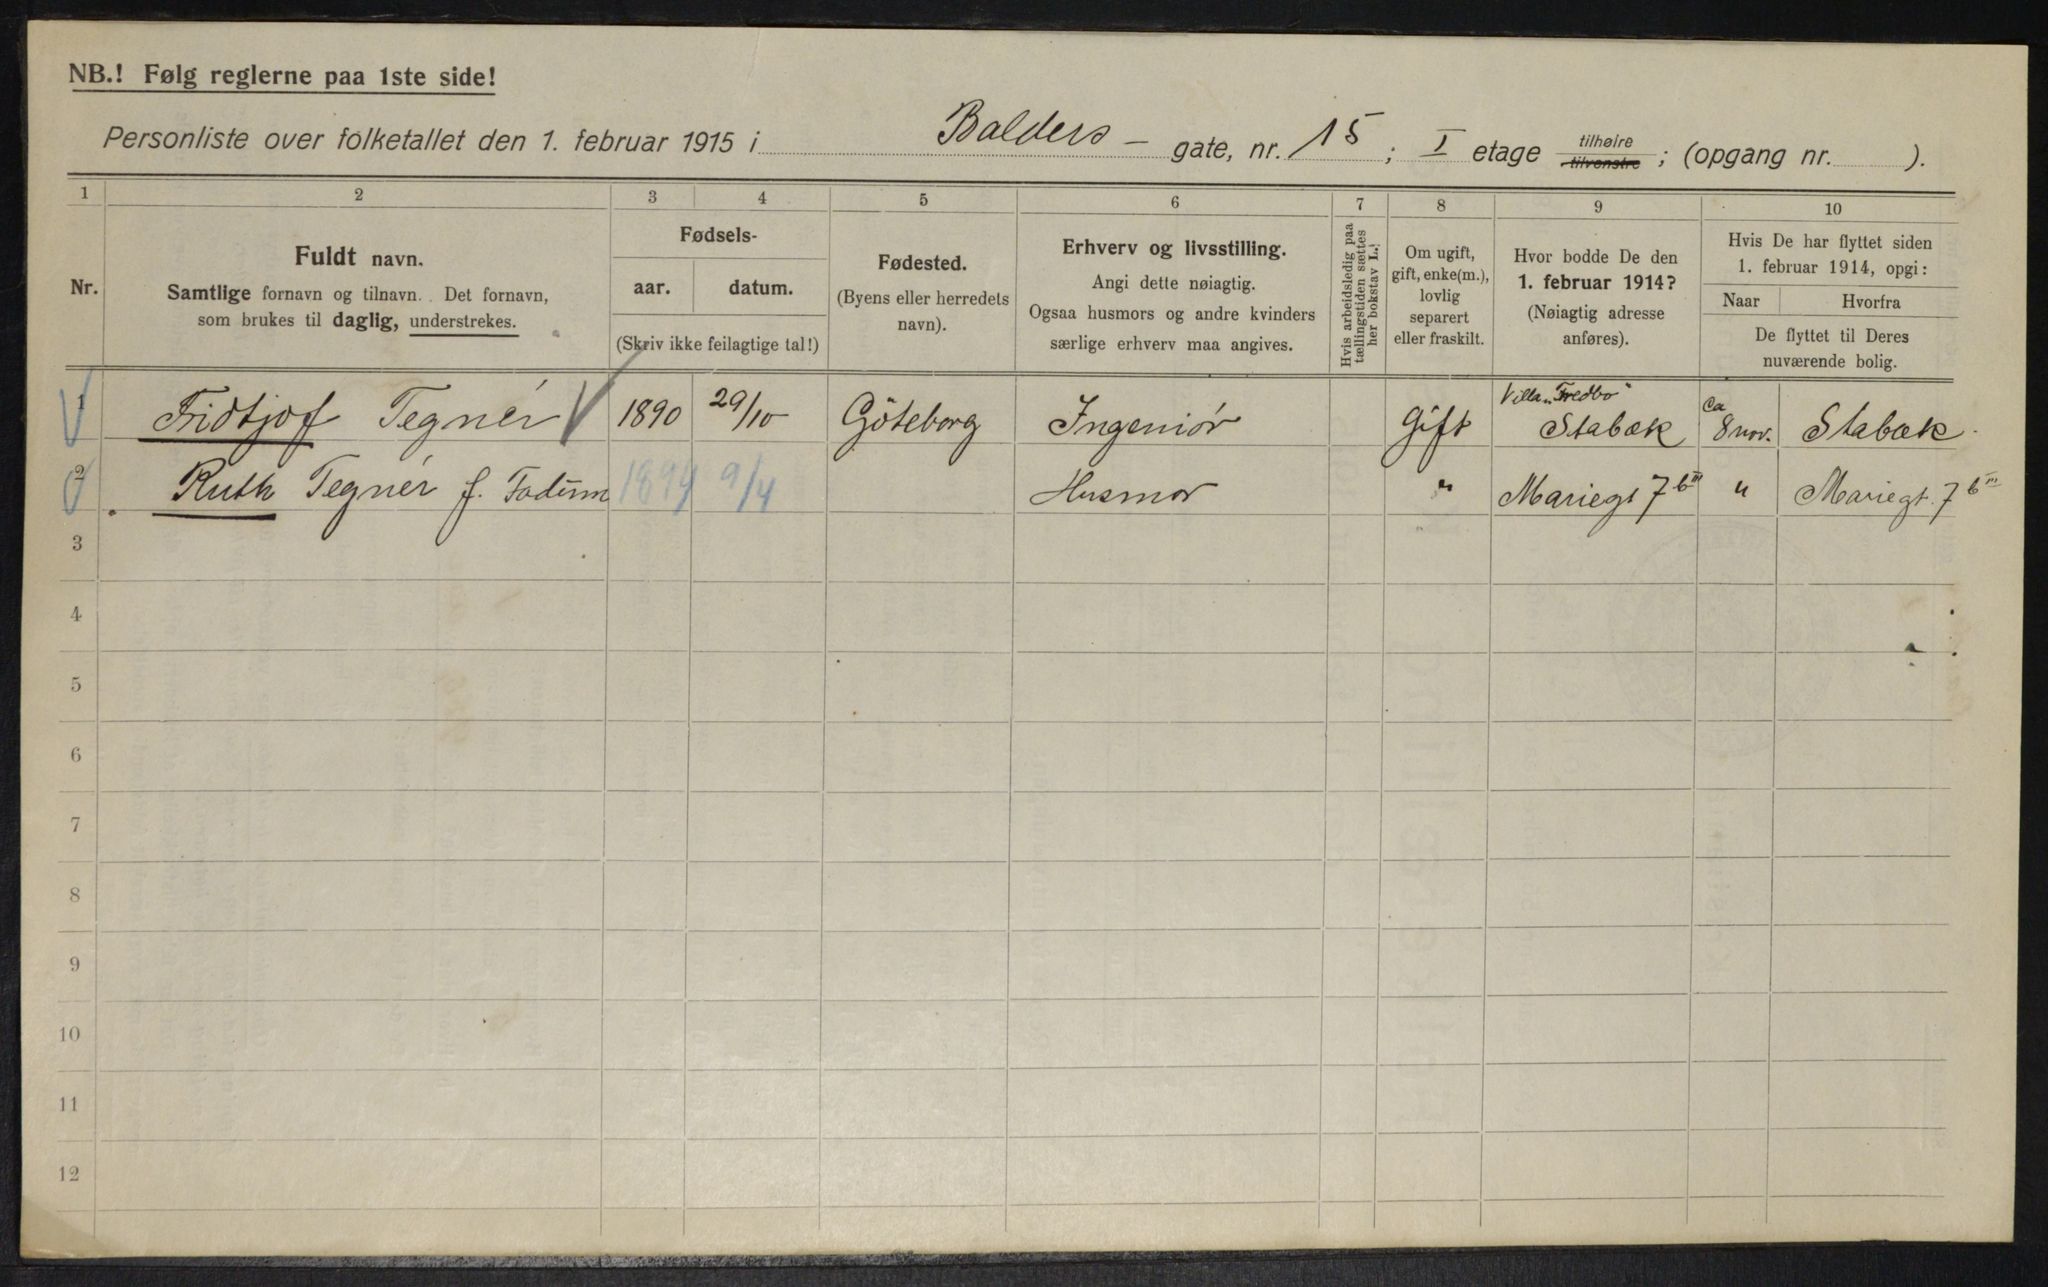 NB.! Følg reglerne paa 1ste side!
Personliste over folketallet den 1. februar 1915 i Balders - gate, nr. 15; I etage tilhøire tilvenstre; (opgang nr. ).
1 2 3 4 5 6 7 8 9 10
Nr.
Fuldt navn.
Samtlige fornavn og tilnavn. Det fornavn,
som brukes til daglig, understrekes.
Fødsels-
aar. datum.
(Skriv ikke feilagtige tal!)
Fødested.
(Byens eller herredets
navn).
Erhverv og livsstilling.
Angi dette nøiagtig.
Ogsaa husmors og andre kvinders
særlige erhverv maa angives.
Hvis arbeidsledig paa
tællingstiden sættes
her bokstav L.!
Om ugift,
gift, enke(m.),
lovlig
separert
eller fraskilt.
Hvor bodde De den
1. februar 1914?
(Nøiagtig adresse
anføres).
Hvis De har flyttet siden
1. februar 1914, opgi:
Naar Hvorfra
De flyttet til Deres
nuværende bolig.
1 Fridtjof Tegnér 1890 29/10 Göteborg Ingeniør Gift Villa „Fredbo" Stabæk Ca 8 nov. Stabæk.
2 Ruth Tegnér f. Fadum 1894 9/4 Husmor " Mariegt 7 b III " Mariegt. 7 b III
3
4
5
6
7
8
9
10
11
12